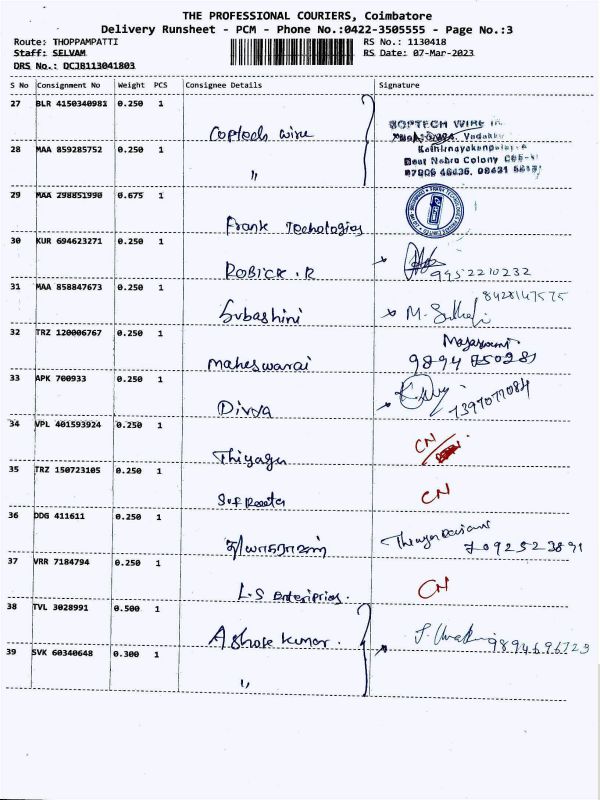 THE PROFESSIONAL COURIERS, Coimbatore
Delivery Runsheet - PCM - Phone No.:0422-3505555 - Page No.:3
Route: THOPPAMPATTI RS No.: 1130418
Staff: SELVAM RS Date: 07-Mar-2023
DRS No.: DCJB113041803
S No Consignment No Weight PCS Consignee Details Signature
27 BLR 4150340981 0.250 1
Coptech wire
28 MAA 859285752 0.250 1
"
29 MAA 298851990 0.675 1
Frank Techologies
30 KUR 694623271 0.250 1
ROBICK.R 9952210232
31 MAA 858847673 0.250 1
Subashini 8428147575
32 TRZ 120006767 0.250 1
Maheswarai
33 APK 700933 0.250 1
Divya 7397077084
34 VPL 401593924 0.250 1
Thiyagu CN
35 TRZ 150723105 0.250 1
CN
36 DDG 411611 0.250 1
7092523891
37 VRR 7184794 0.250 1
L.S Enteripries. CN
38 TVL 3028991 0.500 1
Ashok kumar.
9894696723
39 SVK 60340648 0.300 1
"